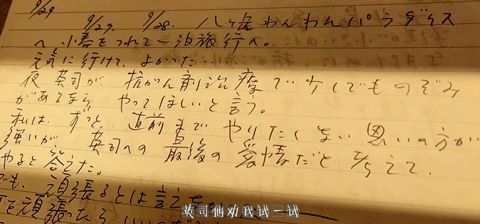 9/29
9/27. 9/28. 八ヶ岳わんわんパラダイス
へ 小春をつれて一泊旅行へ。
元気に行けて、よかった。
夜 英司が 抗がん剤治療で 少しでものぞみ
があるなら、やってほしいと言う。
私は、ずっと 直前まで やりたくない思いの方が
強いが 英司への 最後の愛情だと 考えて、
やると答えた。
でも、頑張るとは言え
頑張
英司他劝我试一试